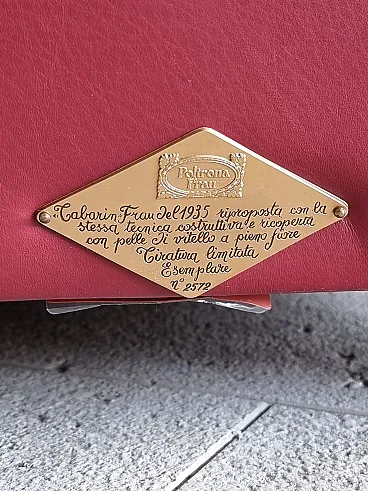 Poltrona
Frau
Tabarin Frau del 1935 riproposta con la
stessa tecnica costruttiva e ricoperta
con pelle di vitello a pieno fiore
Tiratura limitata
Esemplare
n° 2572